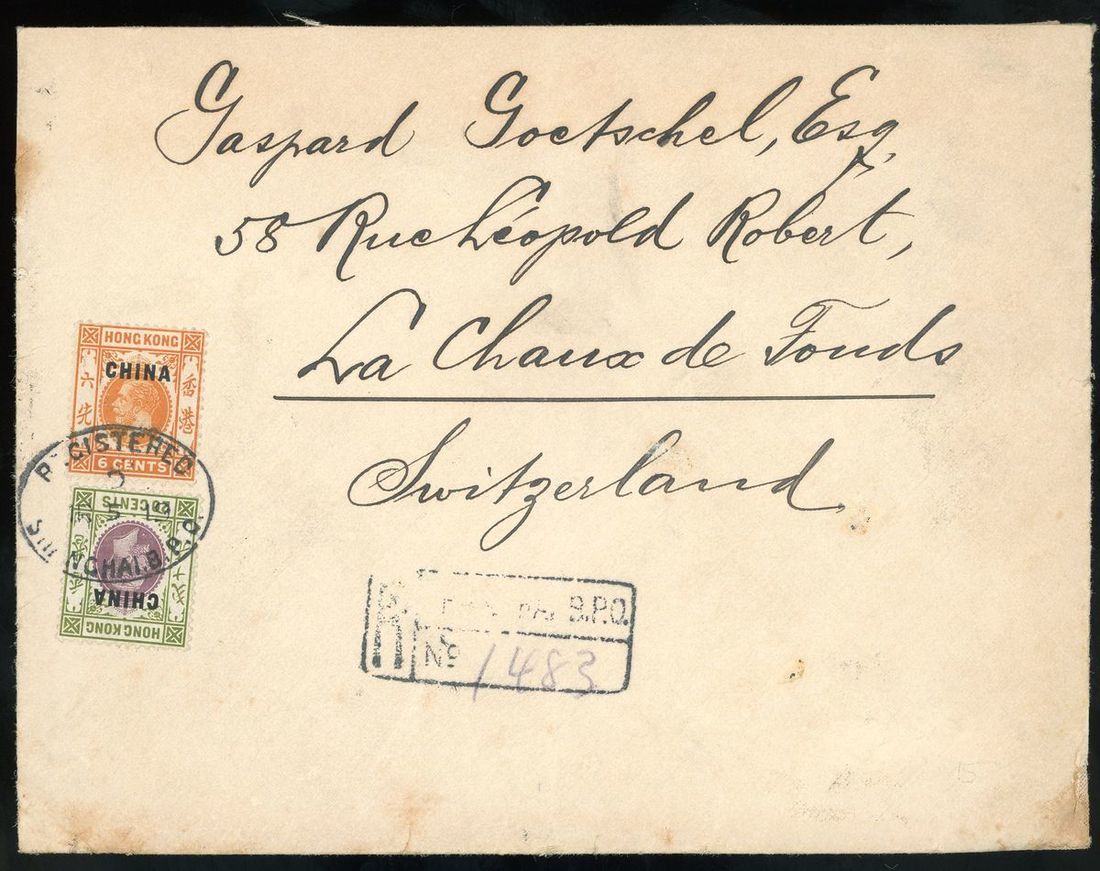 Gaspard Goetschel, Esq.
58 Rue Léopold Robert,
La Chaux de Fonds
Switzerland
HONG KONG
CHINA
六先
香港
6 CENTS
REGISTERED
SHANGHAI.B.P.O.
CENTS
CHINA
HONG KONG
R
B.P.O.
No 1483
15